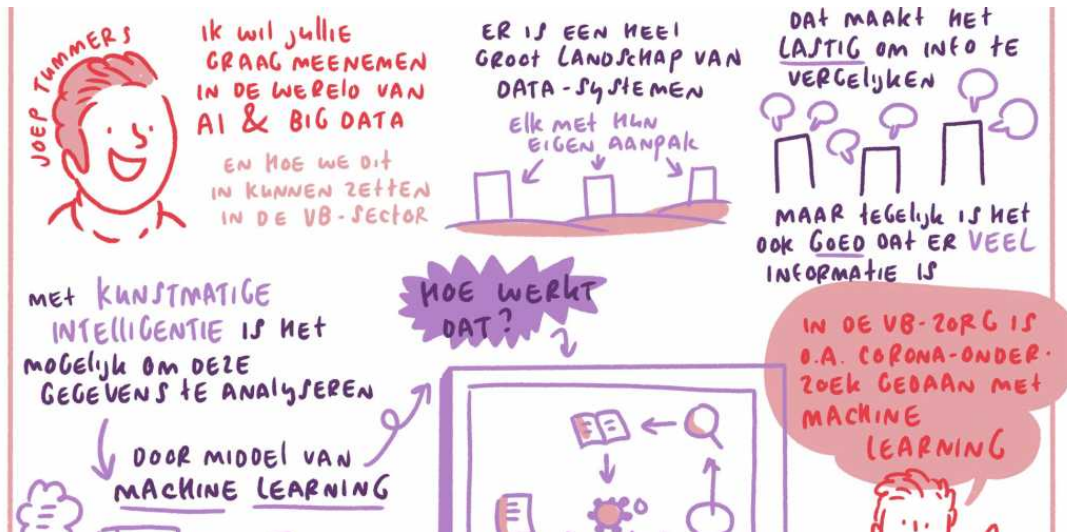 JOEP TUMMERS
IK WIL JULLIE
GRAAG MEENEMEN
IN DE WERELD VAN
AI & BIG DATA
EN HOE WE DIT
IN KUNNEN ZETTEN
IN DE VB-SECTOR
ER IS EEN HEEL
GROOT LANDSCHAP VAN
DATA-SYSTEMEN
ELK MET HUN
EIGEN AANPAK
DAT MAAKT HET
LASTIG OM INFO TE
VERGELIJKEN
MAAR TEGELIJK IS HET
OOK GOED DAT ER VEEL
INFORMATIE IS
MET KUNSTMATIGE
INTELLIGENTIE IS HET
MOGELIJK OM DEZE
GEGEVENS TE ANALYSEREN
DOOR MIDDEL VAN
MACHINE LEARNING
HOE WERKT
DAT?
IN DE VB-ZORG IS
O.A. CORONA-ONDER-
ZOEK GEDAAN MET
MACHINE
LEARNING